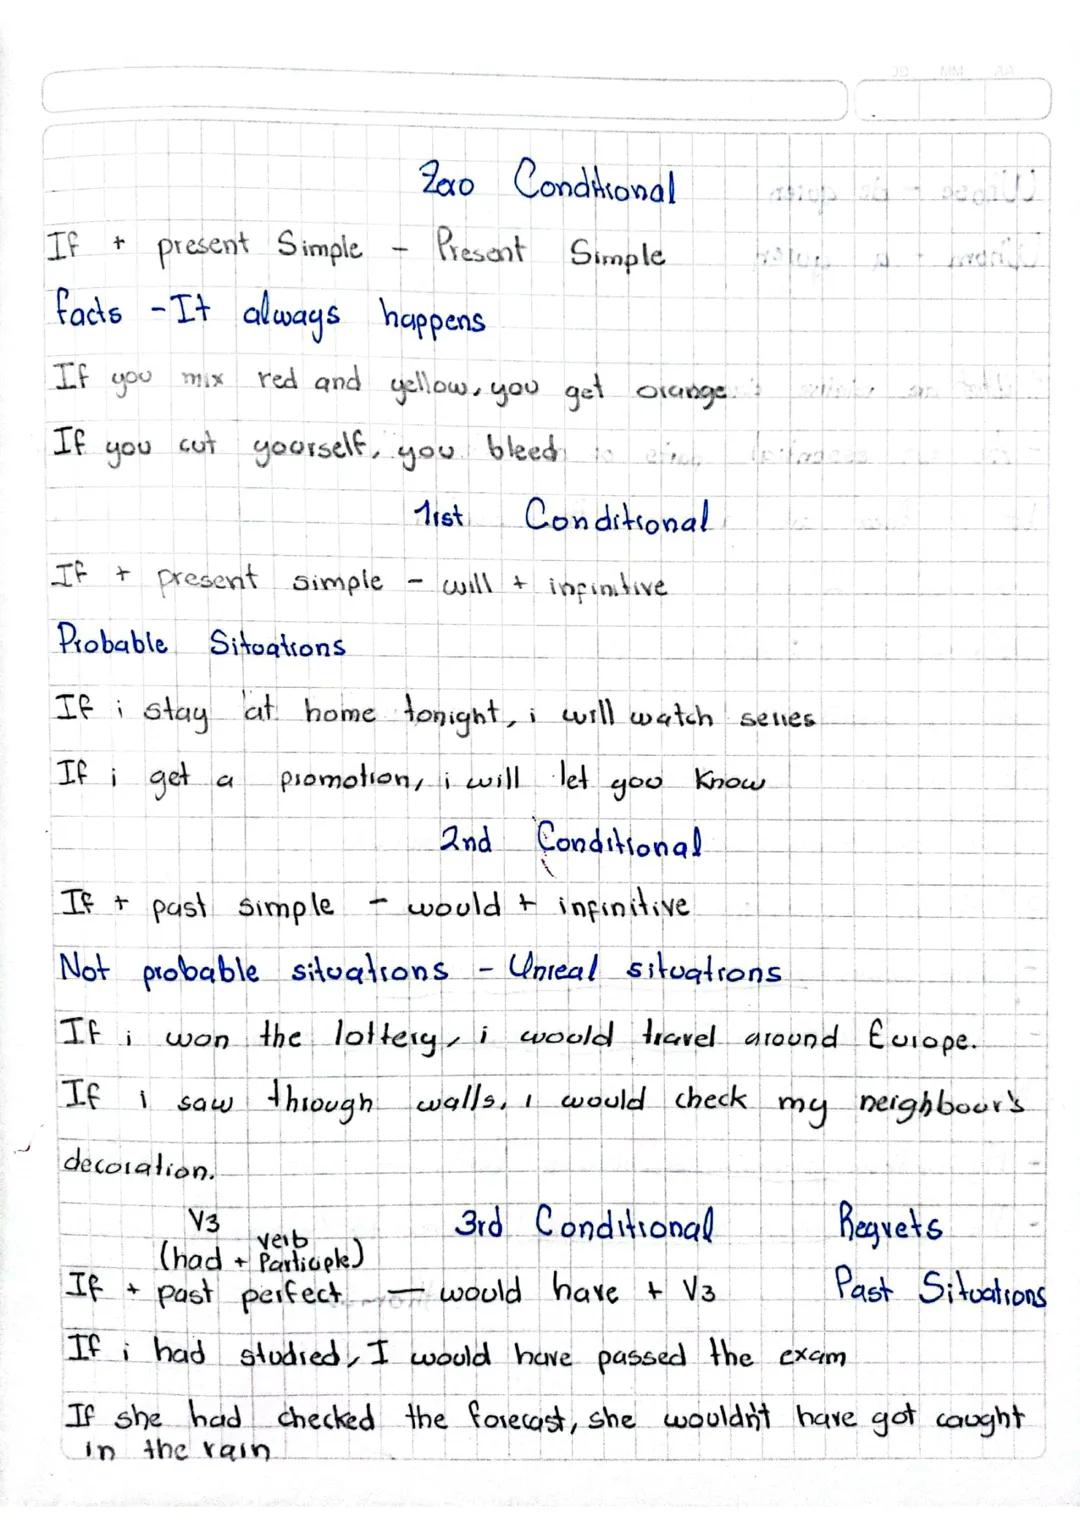 Zero Conditional
If + present Simple - Present Simple
facts - It always happens
If you mix red and yellow, you get orange
If you cut yourself, you bleed
1rst Conditional
If + present simple - will + infinitive
Probable Situations
If i stay at home tonight, i will watch series
If i get a promotion, i will let you Know
2nd Conditional
If + past simple - would + infinitive
Not probable situations - Unreal situations
If i won the lottery, i would travel around Europe.
If i saw through walls, i would check my neighbour's
decoration.
3rd Conditional Regrets
V3
(had + verb Participle)
If + past perfect - would have + V3 Past Situations
If i had studied, I would have passed the exam
If she had checked the forecast, she wouldn't have got caught
in the rain